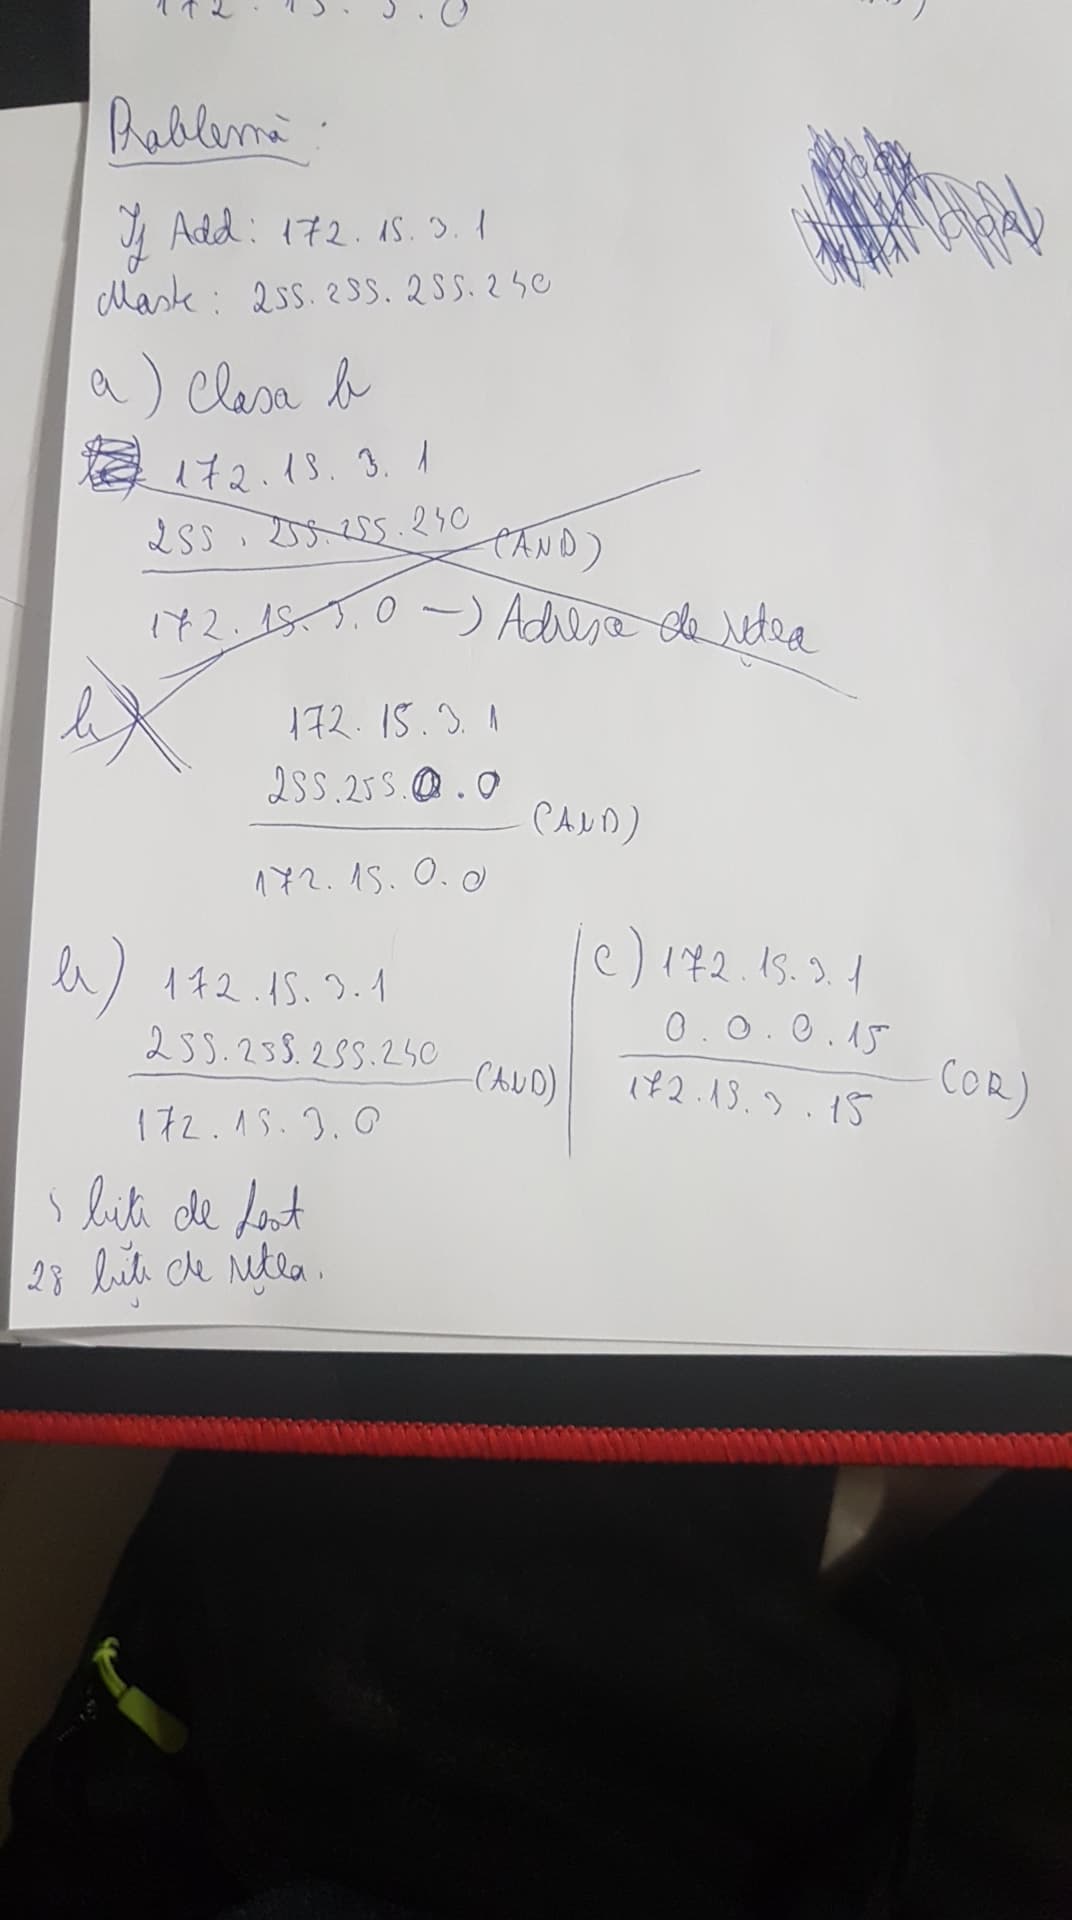 172.15.3.0
Problemă:
Ip Add: 172.15.3.1
Mask: 255.255.255.240
a) Clasa b
172.15.3.1
255.255.255.240 (AND)
172.15.3.0 -> Adresa de rețea
b)
172.15.3.1
255.255.0.0
(AND)
172.15.0.0
b) 172.15.3.1
255.255.255.240
(AND)
172.15.3.0
c) 172.15.3.1
0.0.0.15
(OR)
172.15.3.15
biți de host
28 biți de rețea.